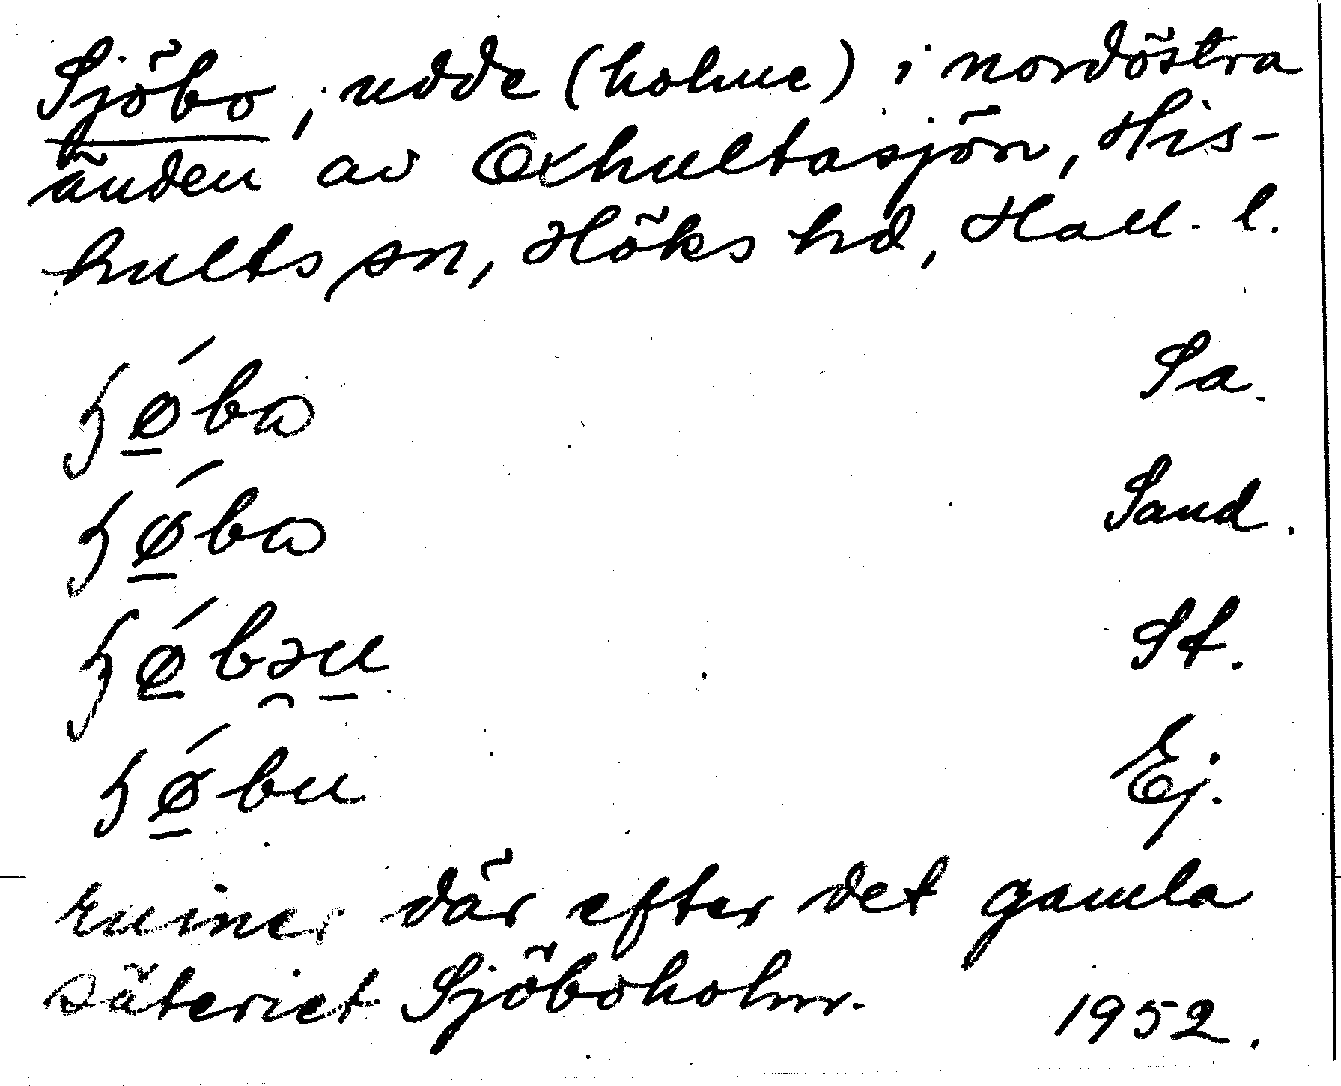 Sjöbo, udde (holme) i nordöstra
änden av Oxhultasjön, His-
hults sn, Höks hd, Hall. l.
Sa.
Sand.
St.
Ej.
ruiner där efter det gamla
säteriet Sjöboholm.
1952.